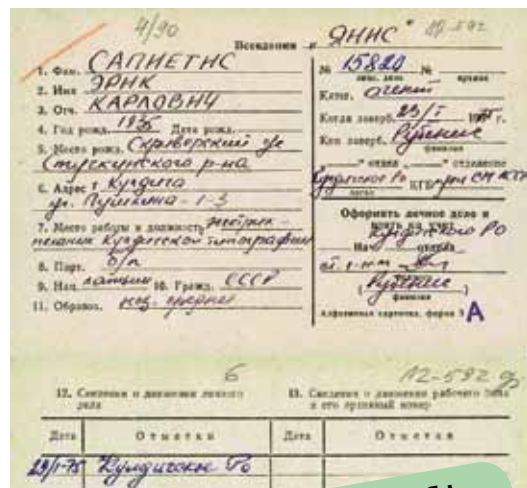 4/90
Псевдоним „ЯННС"
12-592
1. Фам. САПИЕТИС
2. Имя ЭРИК
3. Отч. КАРЛОВИЧ
4. Год рожд. 1935 Дата рожд.
5. Место рожд. Скриверский с/с
Стучкинского р-на
6. Адрес г Кулдига
ул. Пушкина - 1-3
7. Место работы и должность электрик-
механик Кулдигской типографии
8. Парт. б/п
9. Нац. латыш 10. Гражд. СССР
11. Образов. нез. среднее
№ 15820 №
личн. дело архивн.
Катег. агент
Когда заверб. 23/I 1975 г.
Кем заверб. Рубенис
фамилия
„ " отдел „ " отделение
Кулдигское РО КГБ при СМ
Оформить личное дело и
Кулдигского РО
Нач отдела
ст. о-п
(Рубенис)
фамилия
Алфавитная карточка, форма 3 А
6
12-592
12. Сведения о движении личного
дела
13. Сведения о движении рабочего дела
и его архивный номер
Дата Отметки Дата Отметки
29/I-75 Кулдигское РО